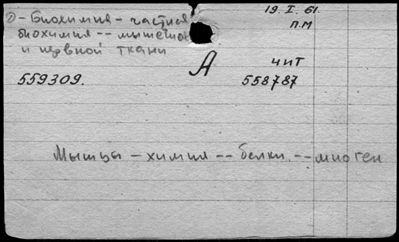 D - Биохимия - частная
19. I. 61.
п.м
биохимия -- мышечной
и нервной ткани
А
чит
559309.
558787
Мышцы - химия -- белки -- миоген